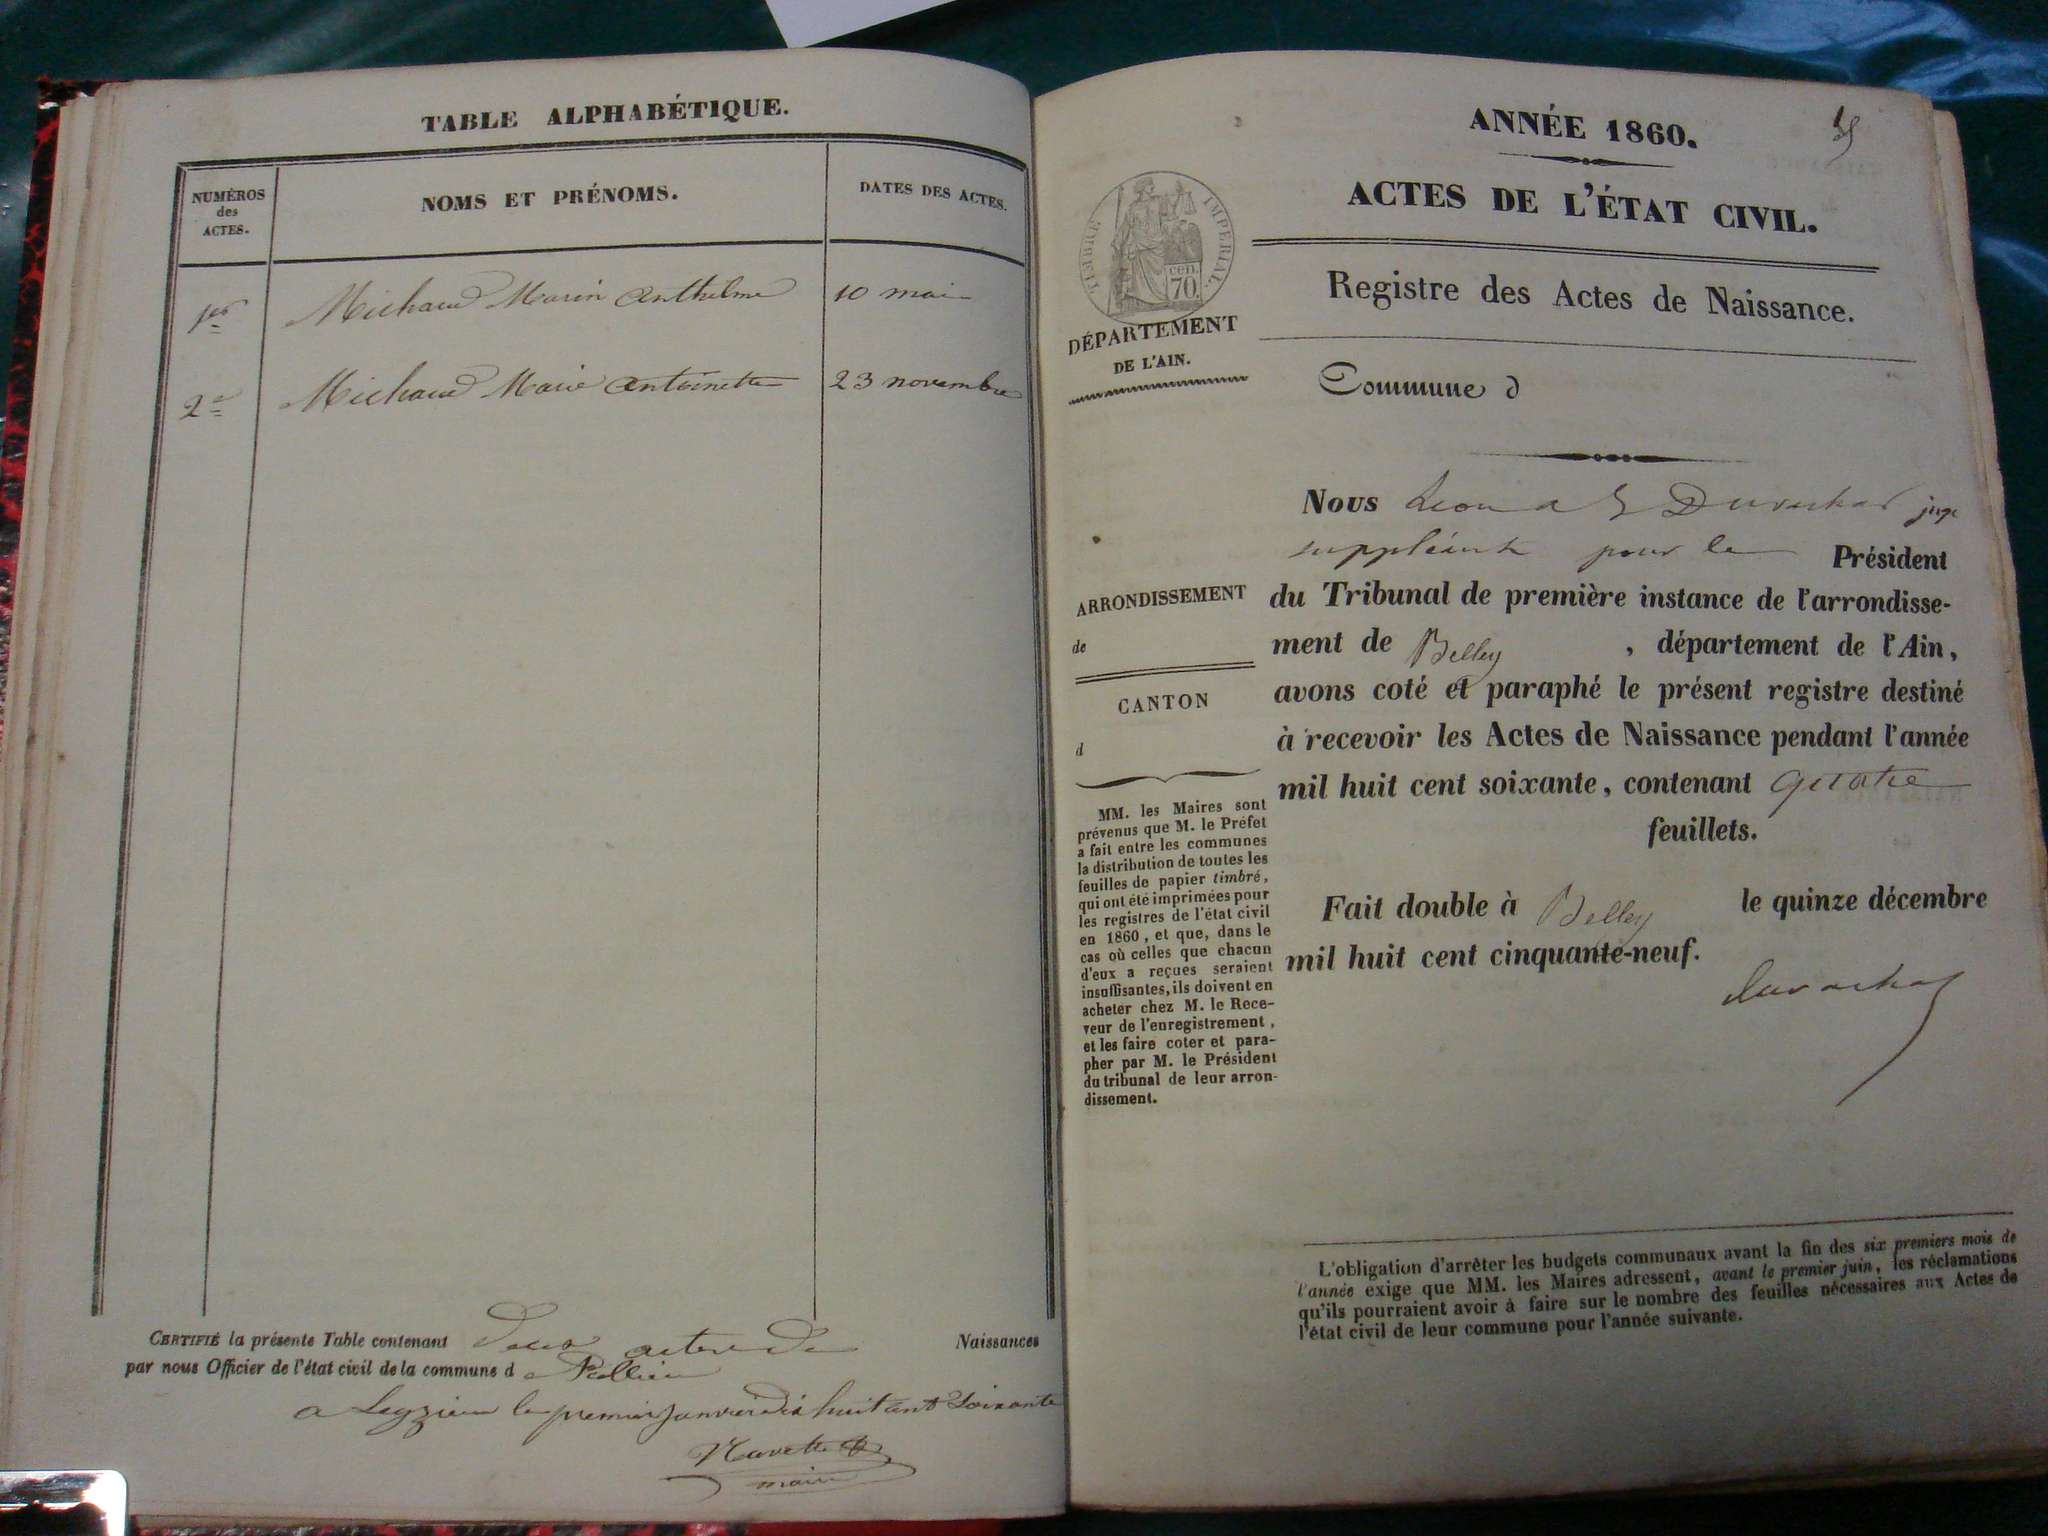 TABLE ALPHABÉTIQUE.
NUMÉROS
des
ACTES.
NOMS ET PRÉNOMS.
DATES DES ACTES.
1er Michaud Marin Anthelme 10 mai
2e Michaud Marie Antoinette 23 novembre
CERTIFIÉ la présente Table contenant deux actes de Naissances
par nous Officier de l'état civil de la commune d
a Leyzieu le premier janvier dix huit cent Soixante
maire
ANNÉE 1860.
ACTES DE L'ÉTAT CIVIL.
TIMBRE IMPÉRIAL
70 cen.
Registre des Actes de Naissance.
DÉPARTEMENT
DE L'AIN.
Commune d
Nous juge
suppléant pour le Président
du Tribunal de première instance de l'arrondisse-
ment de Belley , département de l'Ain,
avons coté et paraphé le présent registre destiné
à recevoir les Actes de Naissance pendant l'année
mil huit cent soixante, contenant quatre
feuillets.
Fait double à Belley le quinze décembre
mil huit cent cinquante-neuf.
ARRONDISSEMENT
de
CANTON
d
MM. les Maires sont
prévenus que M. le Préfet
a fait entre les communes
la distribution de toutes les
feuilles de papier timbré,
qui ont été imprimées pour
les registres de l'état civil
en 1860, et que, dans le
cas où celles que chacun
d'eux a reçues seraient
insuffisantes, ils doivent en
acheter chez M. le Rece-
veur de l'enregistrement,
et les faire coter et para-
pher par M. le Président
du tribunal de leur arron-
dissement.
L'obligation d'arrêter les budgets communaux avant la fin des six premiers mois de
l'année exige que MM. les Maires adressent, avant le premier juin, les réclamations
qu'ils pourraient avoir à faire sur le nombre des feuilles nécessaires aux Actes de
l'état civil de leur commune pour l'année suivante.